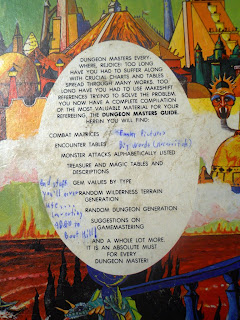 DUNGEON MASTERS EVERY-
WHERE, REJOICE! TOO LONG
HAVE YOU HAD TO SUFFER ALONG
WITH CRUCIAL CHARTS AND TABLES
SPREAD THROUGH MANY WORKS. TOO
LONG HAVE YOU HAD TO USE MAKESHIFT
REFERENCES TRYING TO SOLVE THE PROBLEM.
YOU NOW HAVE A COMPLETE COMPILATION
OF THE MOST VALUABLE MATERIAL FOR YOUR
REFEREEING, THE DUNGEON MASTERS GUIDE.
HEREIN YOU WILL FIND:
COMBAT MATRICES Pictures
ENCOUNTER TABLES Big words
MONSTER ATTACKS ALPHABETICALLY LISTED
TREASURE AND MAGIC TABLES AND
DESCRIPTIONS
GEM VALUES BY TYPE
RANDOM WILDERNESS TERRAIN
GENERATION
RANDOM DUNGEON GENERATION
SUGGESTIONS ON
GAMEMASTERING
AND A WHOLE LOT MORE.
IT IS AN ABSOLUTE MUST
FOR EVERY
DUNGEON MASTER!
stuff
you'll never
use...
converting
AD&D to
Boot Hill!